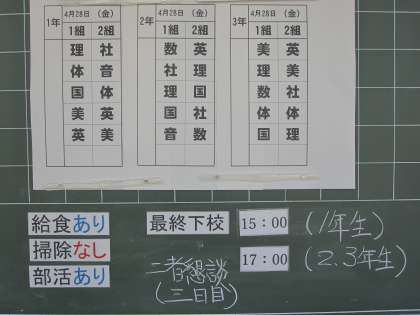 1年 4月28日 (金) 2年 4月28日 (金) 3年 4月28日 (金)
1組 2組 1組 2組 1組 2組
理 社 数 英 美 英
体 音 社 理 理 美
国 体 理 国 数 社
美 英 国 社 体 体
英 美 音 数 国 理
給食あり 最終下校 15:00 (1年生)
掃除なし 17:00 (2.3年生)
部活あり 二者懇談
(三日目)